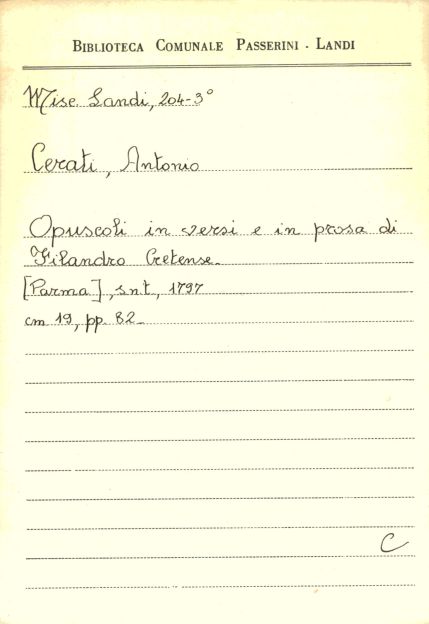 BIBLIOTECA COMUNALE PASSERINI - LANDI
Misc. Landi, 204-3°
Cerati, Antonio
Opuscoli in versi e in prosa di
Filandro Cretense.
[Parma], s.n.t., 1797
cm 19, pp. 82.
C